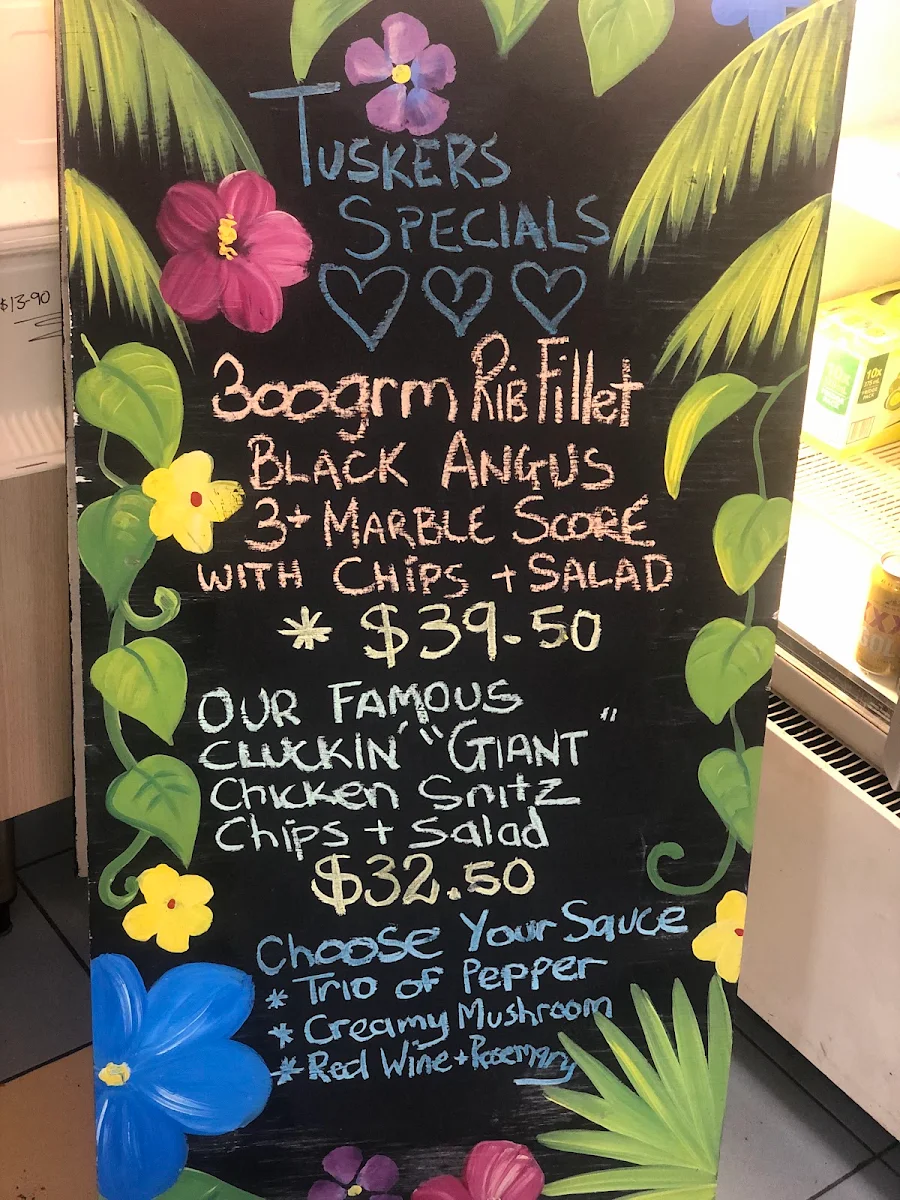 TUSKERS
SPECIALS
$13-90
300grm Rib Fillet
BLACK ANGUS
3+ MARBLE SCORE
WITH CHIPS + SALAD
* $39.50
OUR FAMOUS
CLUCKIN' "GIANT"
Chicken Snitz
Chips + Salad
$32.50
Choose Your Sauce
* Trio of Pepper
* Creamy Mushroom
* Red Wine + Rosemary
10x